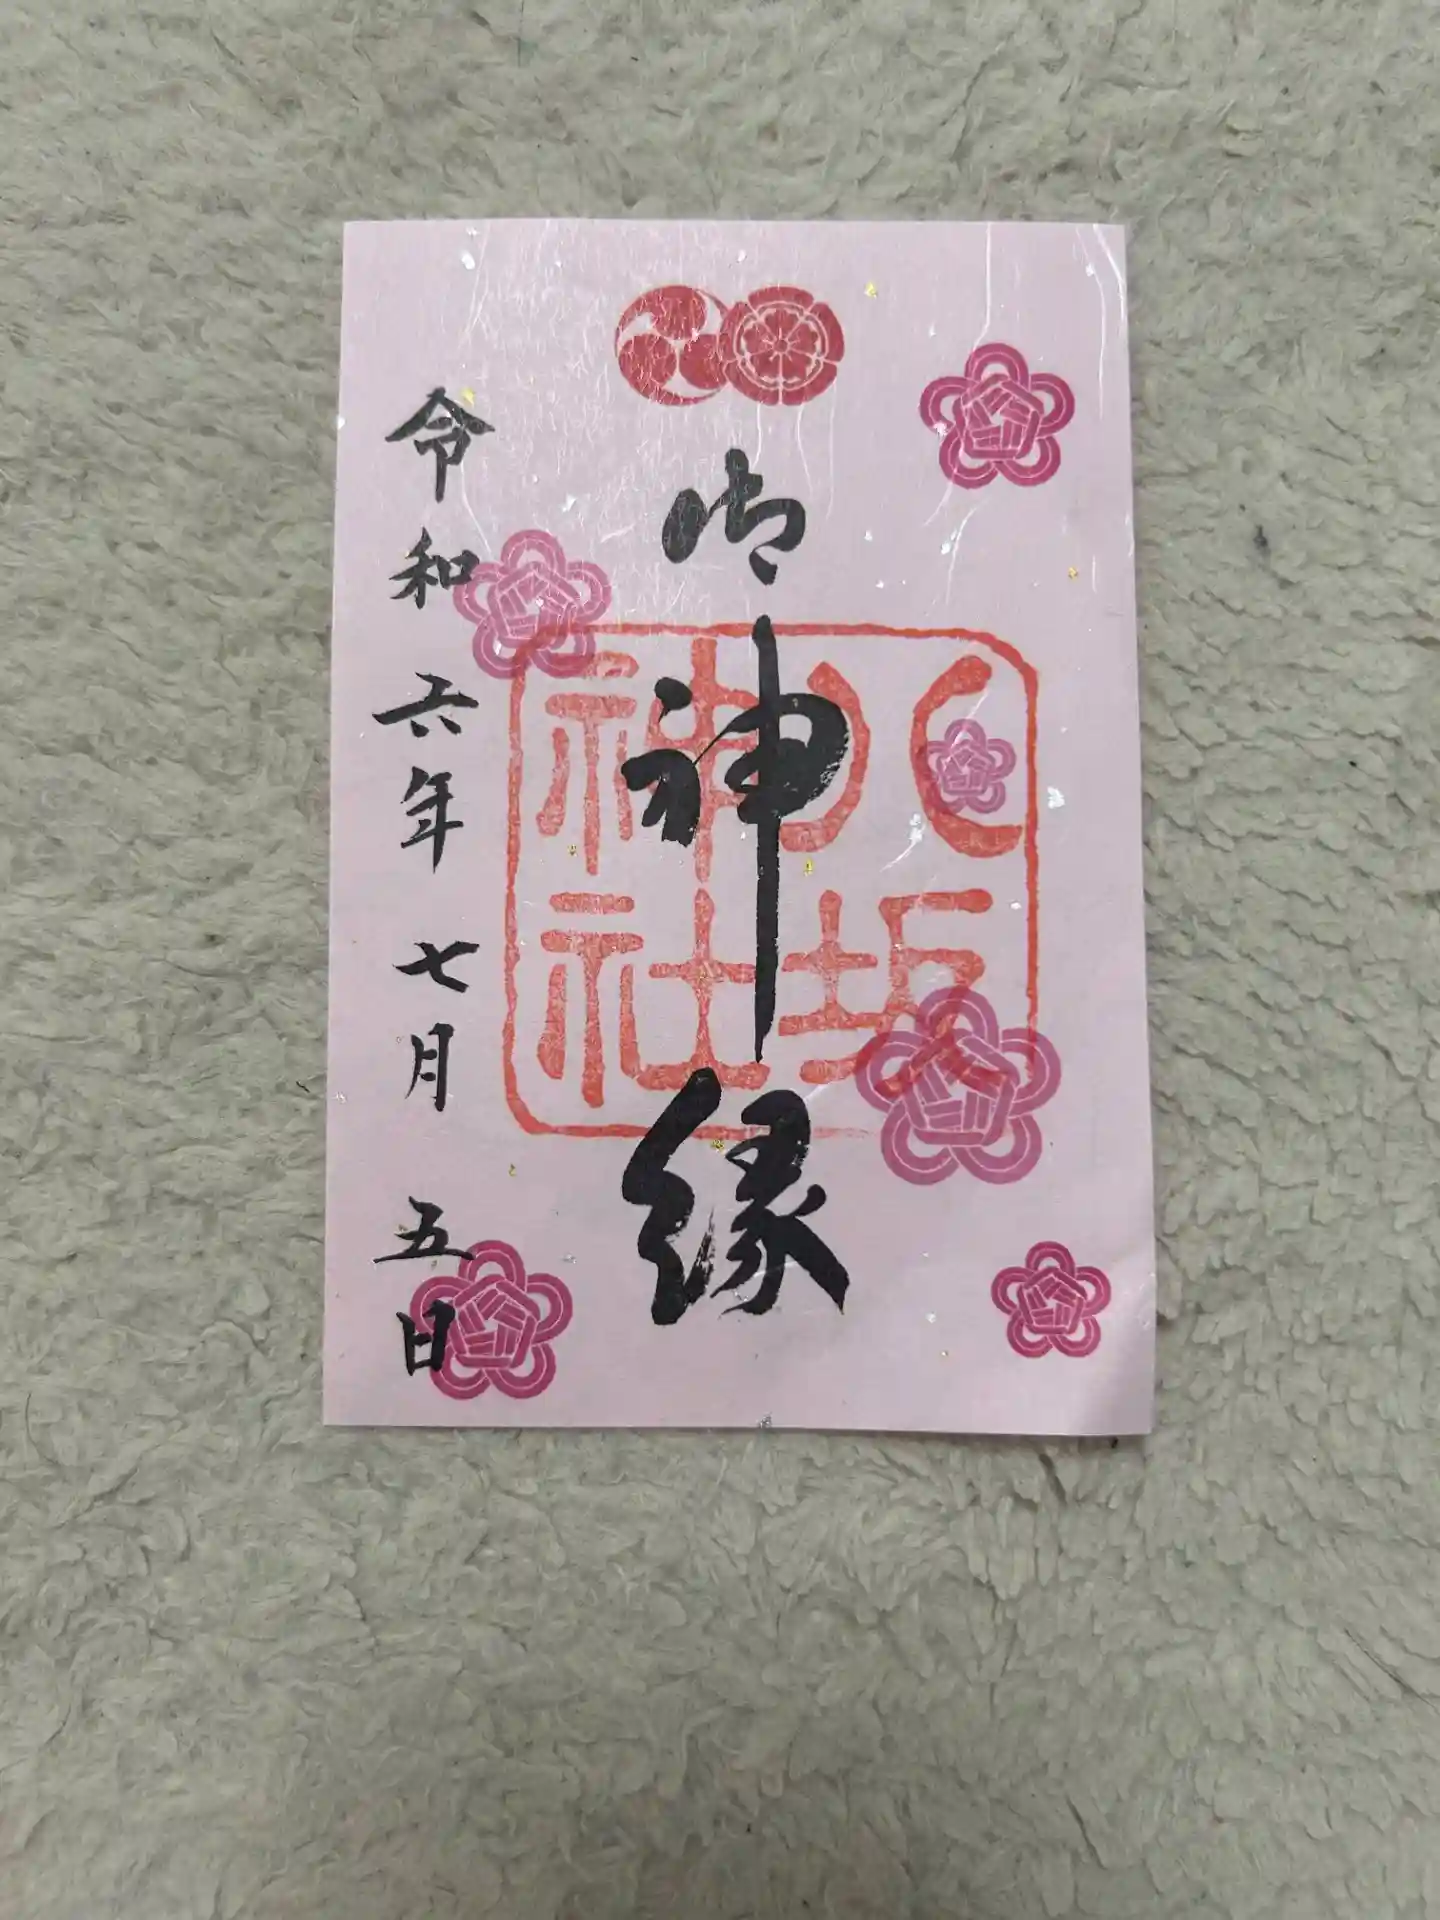 御神縁
八坂
神社
令和六年七月五日